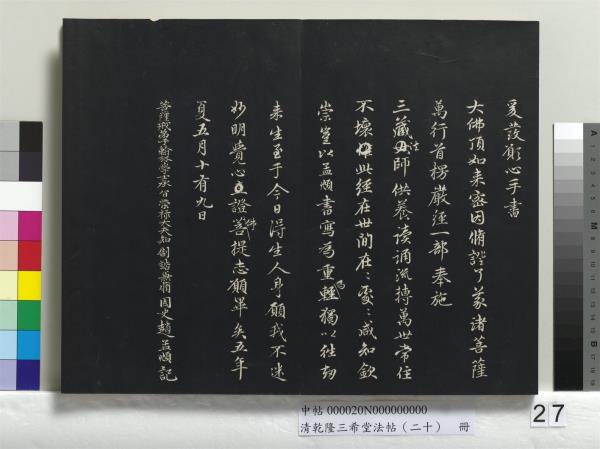 爰發願心手書
大佛頂如来密因脩證了義諸菩薩
萬行首楞嚴經一部奉施
三藏法師供養读诵流轉萬世常住
不壞此經在世间在々處々咸知欽
崇豈以孟頫書寫為重為輕獨以往劫
来生至于今日得生人身願我不迷
妙明費心證佛菩提志願畢矣五年
夏五月十有九日
翰林學士承旨榮祿大夫知制誥兼脩國史趙孟頫記
中帖 000020N000000000
清乾隆三希堂法帖（二十） 冊
27